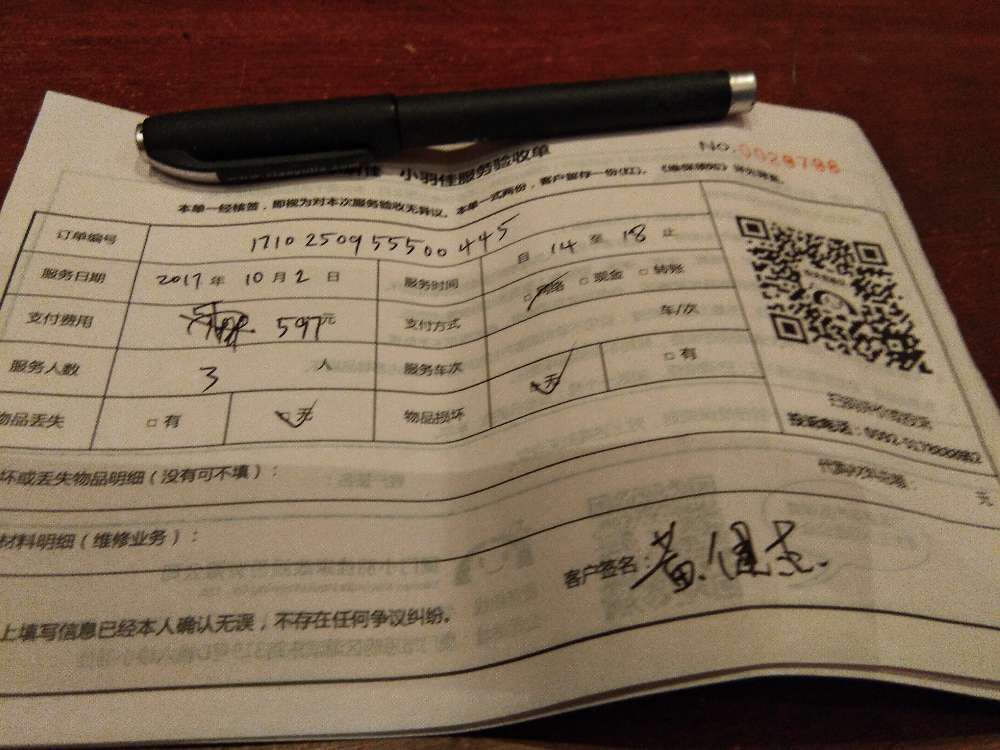 小羽佳服务验收单
No.0028788
本单一经核签，即视为对本次服务验收无异议。本单一式两份，客户留存一份(红)。
订单编号 1710250955500445
服务日期 2017年 10月2日 服务时间 自 14 至 18 止
支付费用 597元 支付方式 □网络 □现金 □转账
服务人数 3 人 服务车次 车/次
物品丢失 □有 □无 物品损坏 □无 □有
坏或丢失物品明细（没有可不填）：
材料明细（维修业务）：
元
客户签名：黄健忠
上填写信息已经本人确认无误，不存在任何争议纠纷。